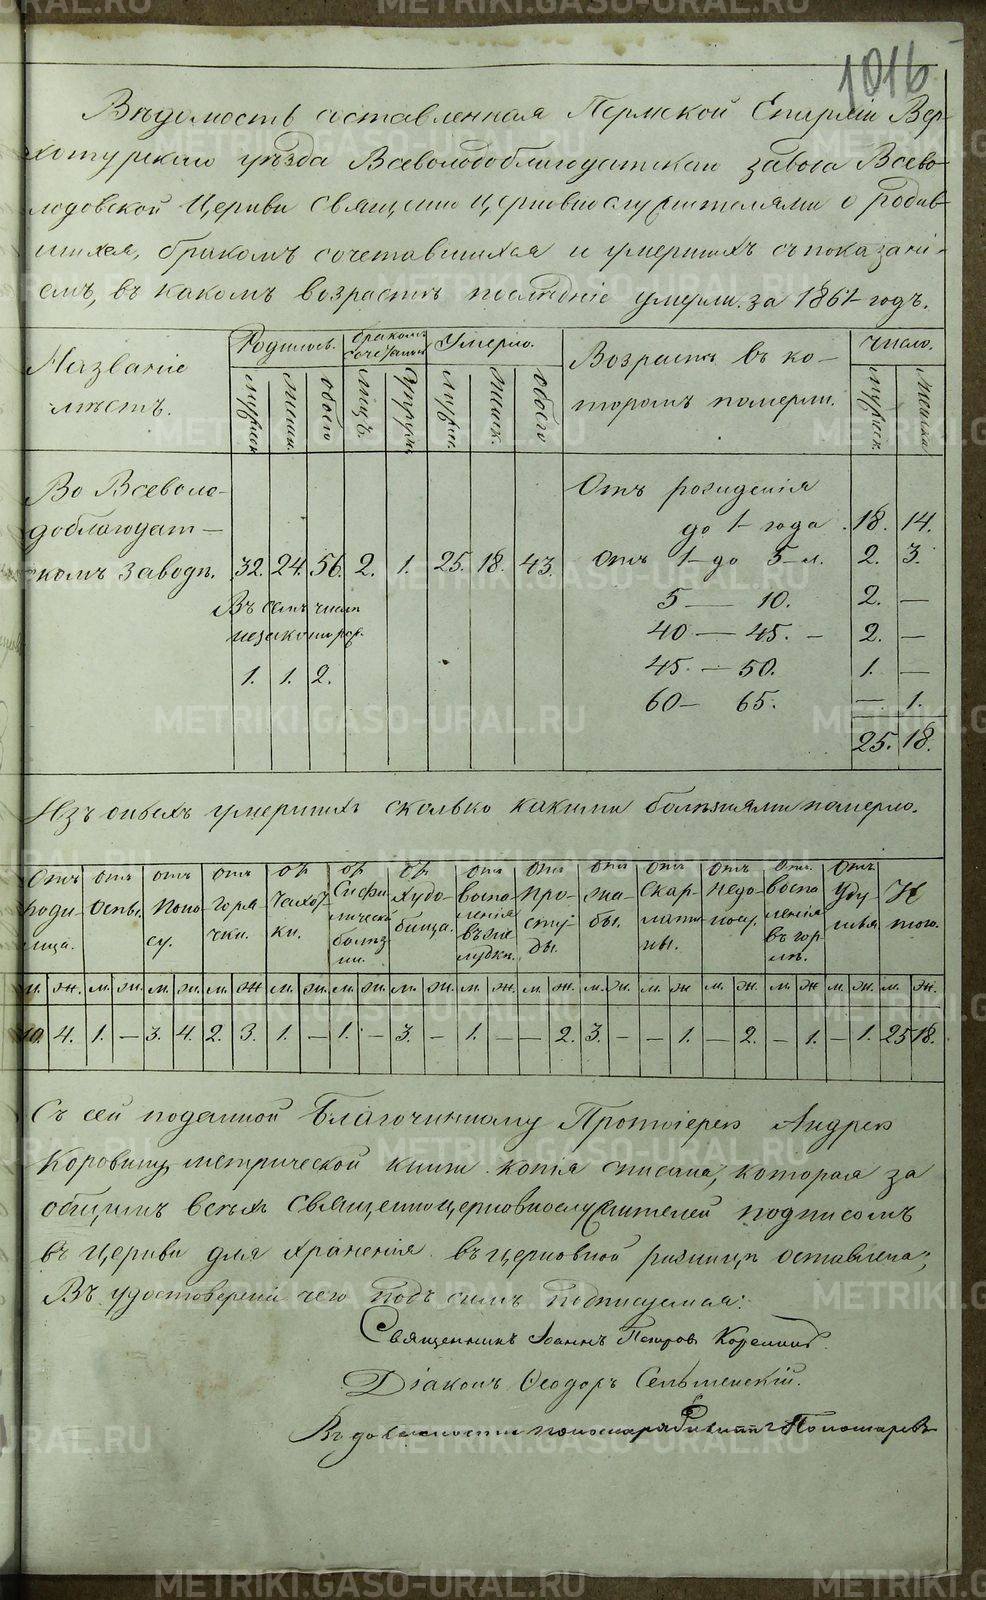 1016
Вѣдомость составленная Пермской Епархіи Вер-
хотурскаго уѣзда Всеволодоблагодатскаго завода Всево-
лодовской Церкви священно церковнослужителями о родив-
шихся, бракомъ сочетавшихся и умершихъ съ показані-
емъ, въ какомъ возрастѣ послѣдніе умерли за 1861 годъ.
Названіе мѣстъ. Родилось. бракомъ сочетались Умерло. Возрастъ въ ко-
торомъ померли. число.
мужеск. женск. обоего лицъ. мужск. женск. обоего мужеск. женска
Во Всеволо-
доблагодат-
скомъ заводѣ. 32. 24. 56. 2. 1. 25. 18. 43.
Въ семъ числѣ
незаконнорож.
1. 1. 2.
Отъ рожденія
до 1 года 18. 14.
Отъ 1 до 5 л. 2. 3.
5 — 10. 2. —
40 — 45. — 2. —
45. — 50. 1. —
60 — 65. — 1.
25. 18.
Изъ оныхъ умершихъ сколько какими болѣзнями померло.
Отъ родимца. отъ Оспы. отъ поносу. отъ горячки. от чахотки. от Сифилической болѣзни. от худобища. отъ воспаленія въ желудкѣ. отъ простуды. отъ жабы. отъ скарлатины. отъ недоносу. отъ воспаленія въ горлѣ. отъ удушья Итого.
м. ж. м. ж. м. ж. м. ж. м. ж. м. ж. м. ж. м. ж. м. ж. м. ж. м. ж. м. ж. м. ж. м. ж. м. ж.
10. 4. 1. — 3. 4. 2. 3. 1. — 1. — 3. — 1. — — 2. 3. — — 1. — 2. — 1. — 1. 25 18.
Съ сей поданной Благочинному Протоіерею Андрею
Коровину метрической книги копія писана, которая за
общимъ всѣхъ священноцерковнослужителей подписомъ
въ церкви для храненія въ церковной ризницѣ оставлена;
Въ удостовѣреніи чего подъ симъ подписуемся:
Священникъ Іоаннъ Петров
Діаконъ Ѳеодоръ
Въ должности пономаря Пономаревъ
METRIKI.GASO-URAL.RU